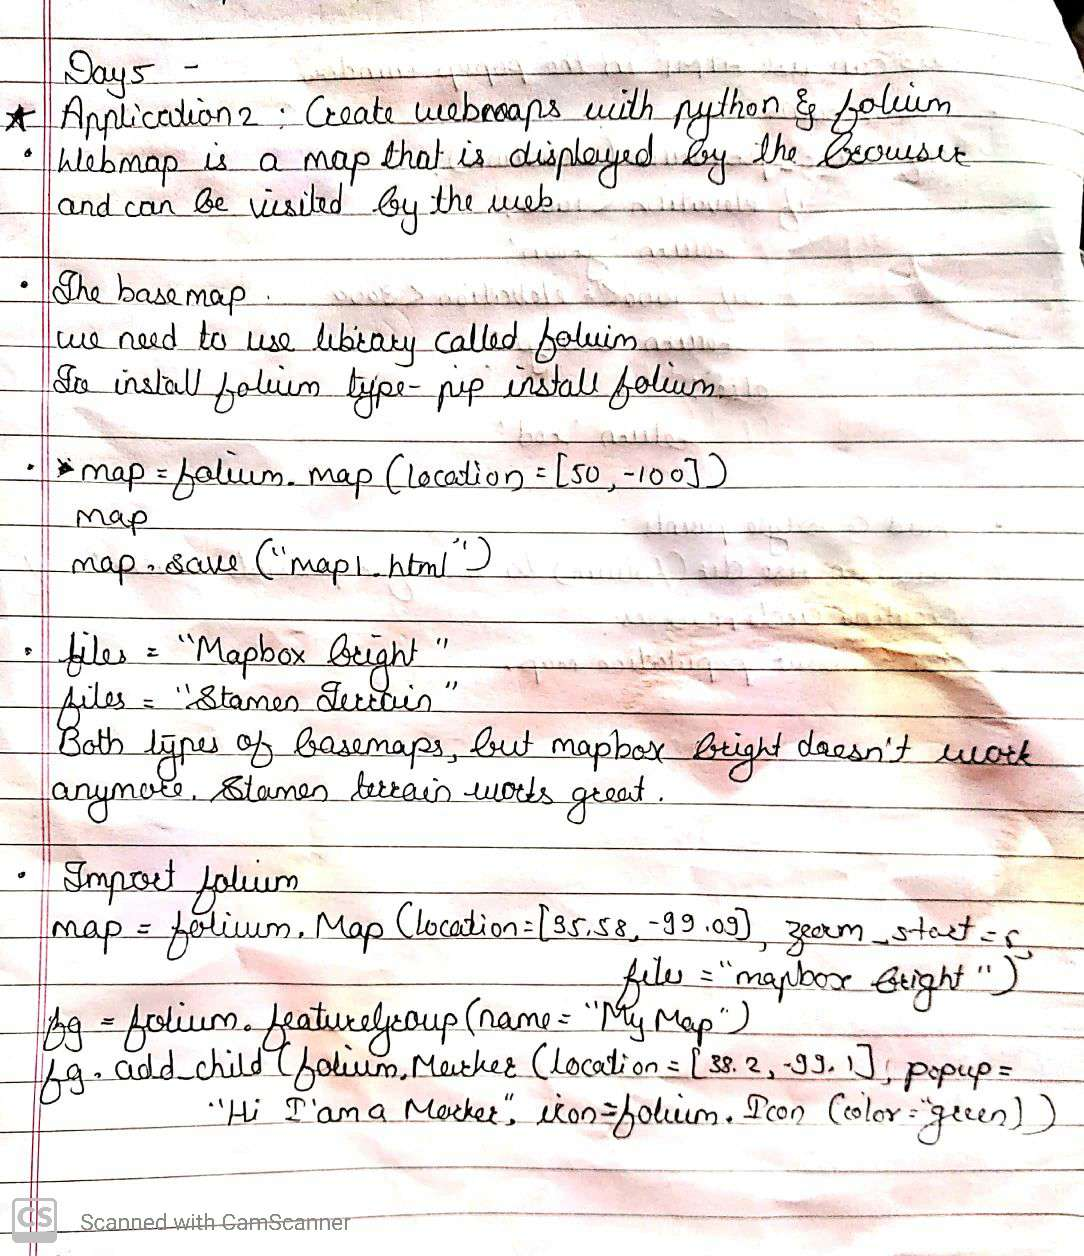 Day 5 -
* Application 2 : Create webmaps with python & folium
• Webmap is a map that is displayed by the browser
and can be visited by the web.
• The basemap.
we need to use library called foluim
To install folium type- pip install folium.
• * map = folium. map (location = [50, -100])
map
map. save ("map1. html")
• files = "Mapbox bright"
files = "Stamen Terrain"
Both types of basemaps, but mapbox bright doesn't work
anymore. Stamen terrain works great.
• Import folium
map = folium. Map (location = [35.58, -99.09], zoom_start = 5,
files = "mapbox bright")
fg = folium. featureGroup (name = "My Map")
fg. add_child (folium. Marker (location = [38.2, -99.1], popup =
"Hi I'am a Marker", icon = folium. Icon (color = "green))
CS Scanned with CamScanner